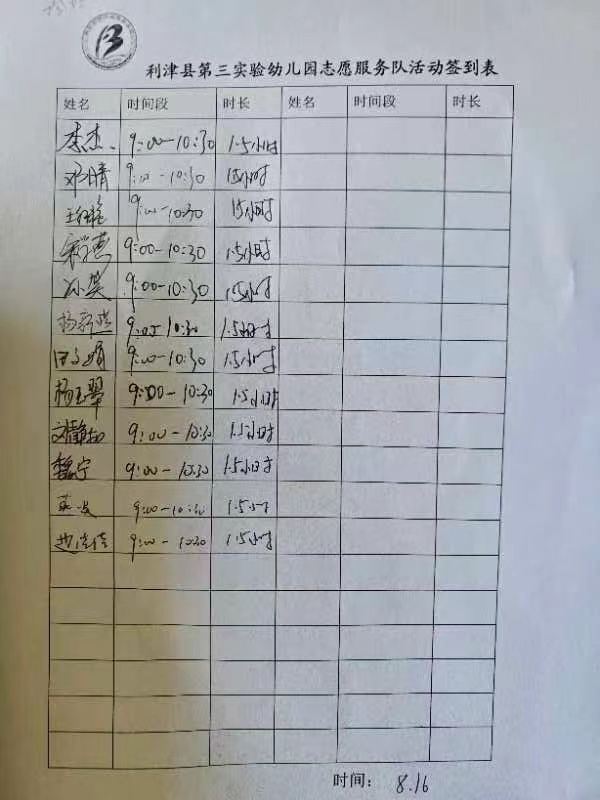 利津县第三实验幼儿园志愿服务队活动签到表
姓名 时间段 时长 姓名 时间段 时长
李杰 9:00-10:30 1.5小时
邓晴 9:00-10:30 1.5小时
9:00-10:30 1.5小时
9:00-10:30 1.5小时
孙笑 9:00-10:30 1.5小时
杨新燕 9:05 10:30 1.5小时
田文娟 9:00-10:30 1.5小时
杨玉翠 9:00-10:30 1.5小时
9:00-10:30 1.5小时
魏宁 9:00-10:30 1.5小时
9:00-10:30 1.5小时
赵倩倩 9:00-10:30 1.5小时
时间: 8.16